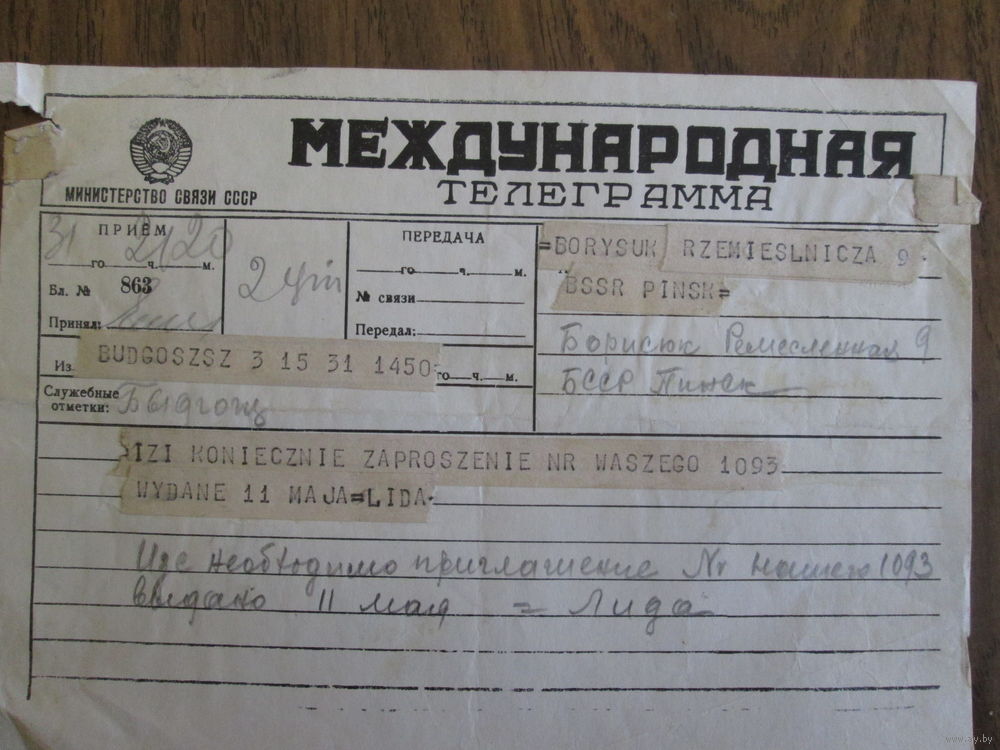 МЕЖДУНАРОДНАЯ
ТЕЛЕГРАММА
МИНИСТЕРСТВО СВЯЗИ СССР
ПРИЕМ
31 2120
го ч. м.
Бл. № 863
Принял:
ПЕРЕДАЧА
го ч. м.
№ связи
Передал:
го ч. м.
=BORYSUK RZEMIESLNICZA 9
BSSR PINSK=
Борисюк Ремесленная 9
БССР Пинск
Из BUDGOSZSZ 3 15 31 1450
Служебные
отметки:
IZI KONIECZNIE ZAPROSZENIE NR WASZEGO 1093
WYDANE 11 MAJA=LIDA
необходимо приглашение Nr 1093
выдано 11 мая = Лида
www.ay.by